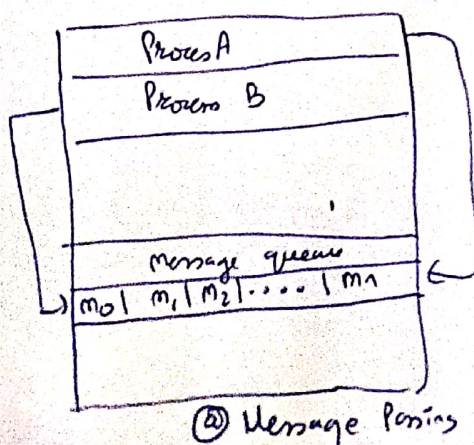 Proces A
Process B
message queue
m0 | m1 | m2 | .... | mn
ⓐ Message Passing